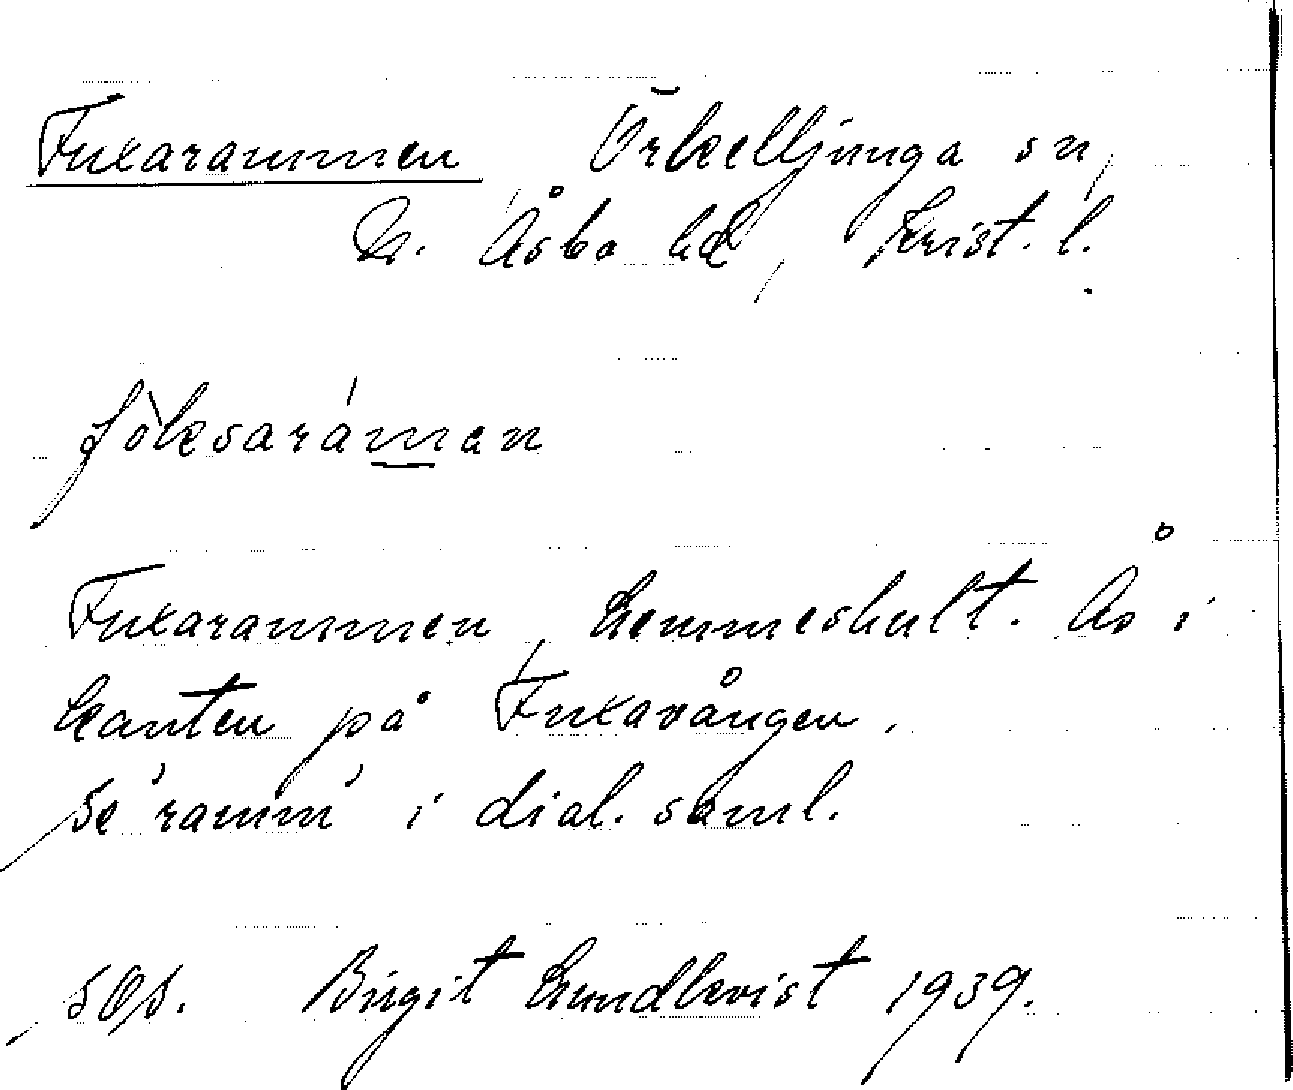 Fuxarammen Örkelljunga sn,
N. Åsbo hd, Krist. l.
föksaráman
Fuxarammen, Lemmeshult. Ås i
kanten på Fuxavången.
Se 'ramm' i dial. saml.
SOS. Birgit Lundkvist 1939.